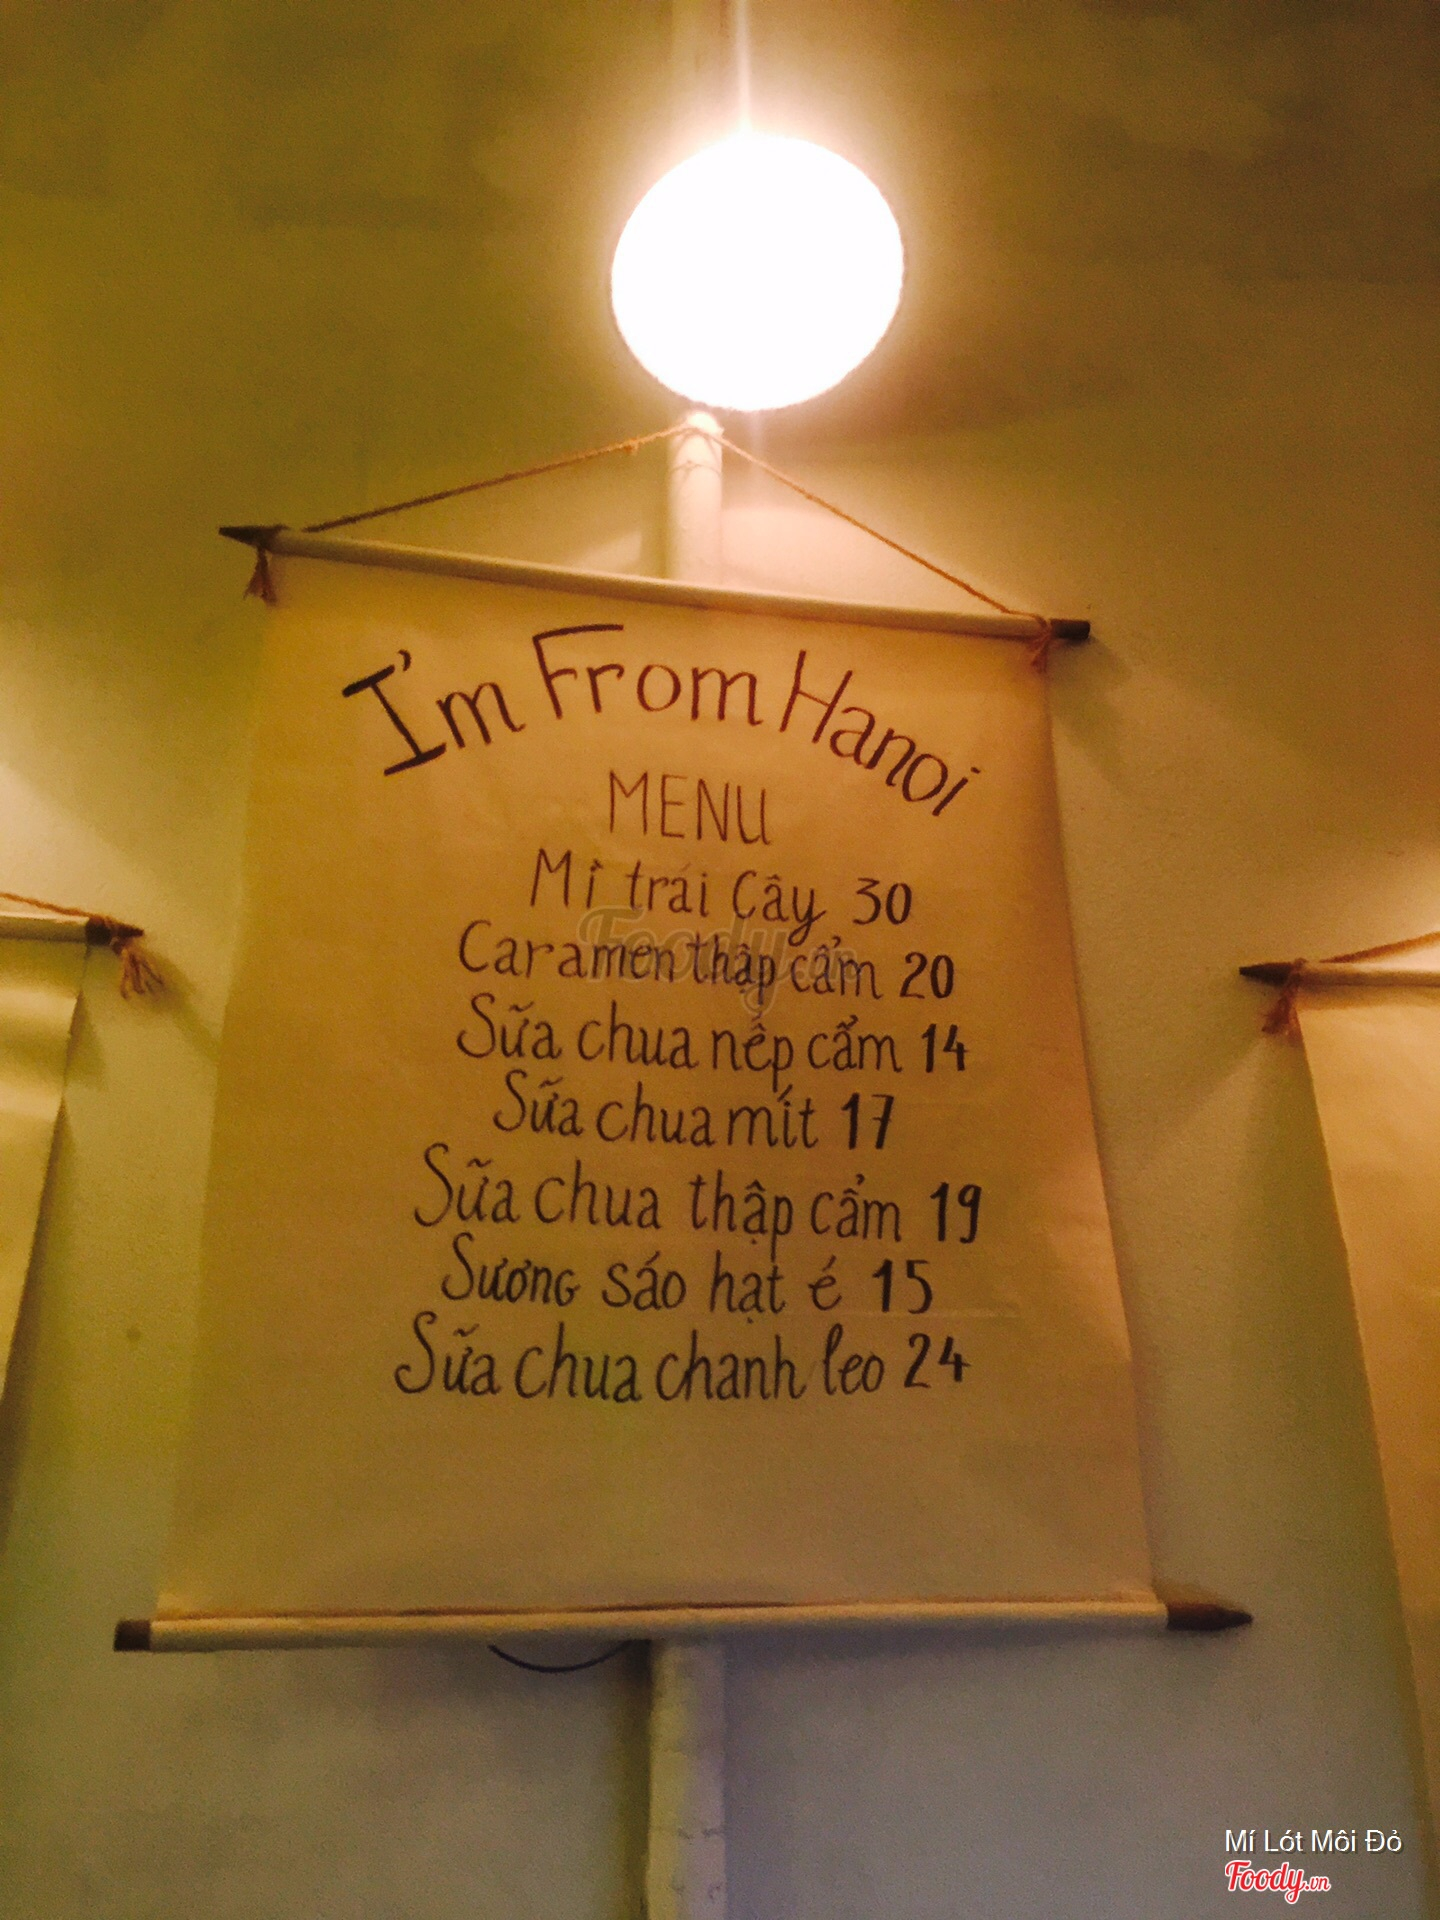 I'm From Hanoi
MENU
Mì trái Cây 30
Caramen thập cẩm 20
Sữa chua nếp cẩm 14
Sữa chua mít 17
Sữa chua thập cẩm 19
Sương sáo hạt é 15
Sữa chua chanh leo 24
Foody.vn
Mí Lót Môi Đỏ
Foody.vn